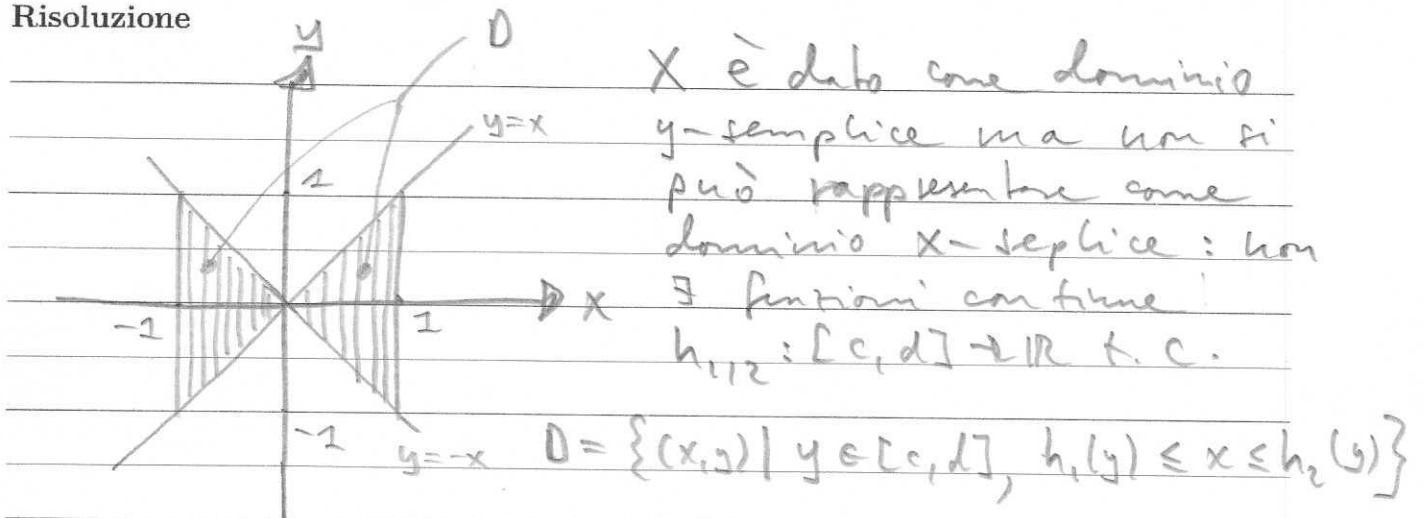 Risoluzione
y
D
X è dato come dominio
y=x
y-semplice ma non si
1
può rappresentare come
dominio x-seplice : non
x
∃ funzioni continue
-1
1
h₁,₂ : [c, d] → ℝ t. c.
-1
y=-x
D = {(x,y) | y ∈ [c, d], h₁(y) ≤ x ≤ h₂(y)}